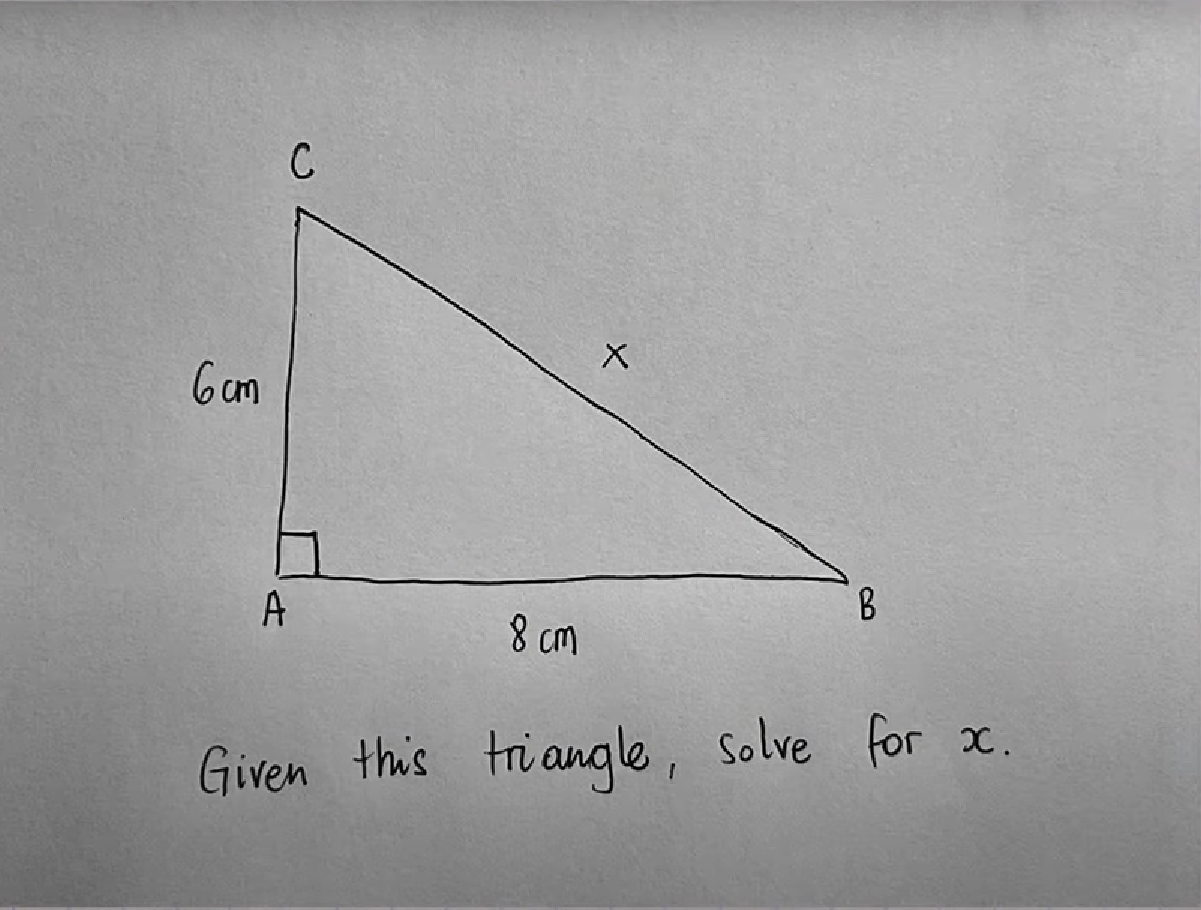 C
x
6 cm
A
B
8 cm
Given this triangle, solve for x.